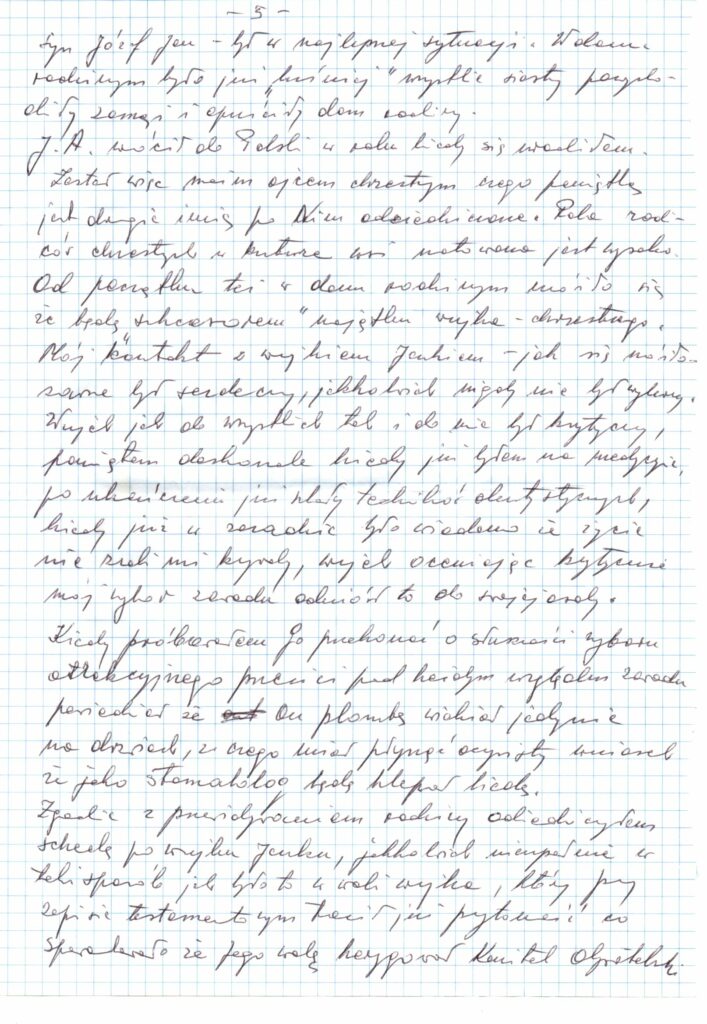 - 5 -
Syn Józef Jan - był w najlepszej sytuacji. W domu
rodzinnym było już "luźniej" wszystkie siostry pocho-
dziły zamąż i opuściły dom rodzinny.
J. A. wrócił do Polski w roku kiedy się urodziłem.
Został więc moim ojcem chrzestnym czego pamiątką
jest drugie imię po Nim odziedziczone. Rola rodzi-
ców chrzestnych w kulturze wsi notowana jest wysoko.
Od początku też w domu rodzinnym mówiło się
że będę sukcesorem "majątku wujka - chrzestnego.
Mój kontakt z wujkiem Jankiem - jak się mówiło
zawsze był serdeczny, jakkolwiek nigdy nie był wylewny.
Wujek jak do wszystkich tak i do mnie był krytyczny,
pamiętam doskonale kiedy już byłem na medycynie,
po ukończeniu już szkoły techników dentystycznych,
kiedy już w zasadzie było wiadomo że życie
nie zrobi mi krzywdy, wujek oceniając krytycznie
mój wybór zawodu odniósł to do swojej osoby.
Kiedy próbowałem Go przekonać o słuszności wyboru
atrakcyjnego przecież pod każdym względem zawodu
powiedział że On plombę widział jedynie
na drzwiach, z czego miał płynąć oczywisty wniosek
że jako stomatolog będę klepał biedę.
Zgodnie z przewidywaniem rodziny odziedziczyłem
schedę po wujku Janku, jakkolwiek niezupełnie w
taki sposób jak było to w woli wujka, który przy
zapisie testamentowym tracił już przytomność co
spowodowało że Jego wolę korygował